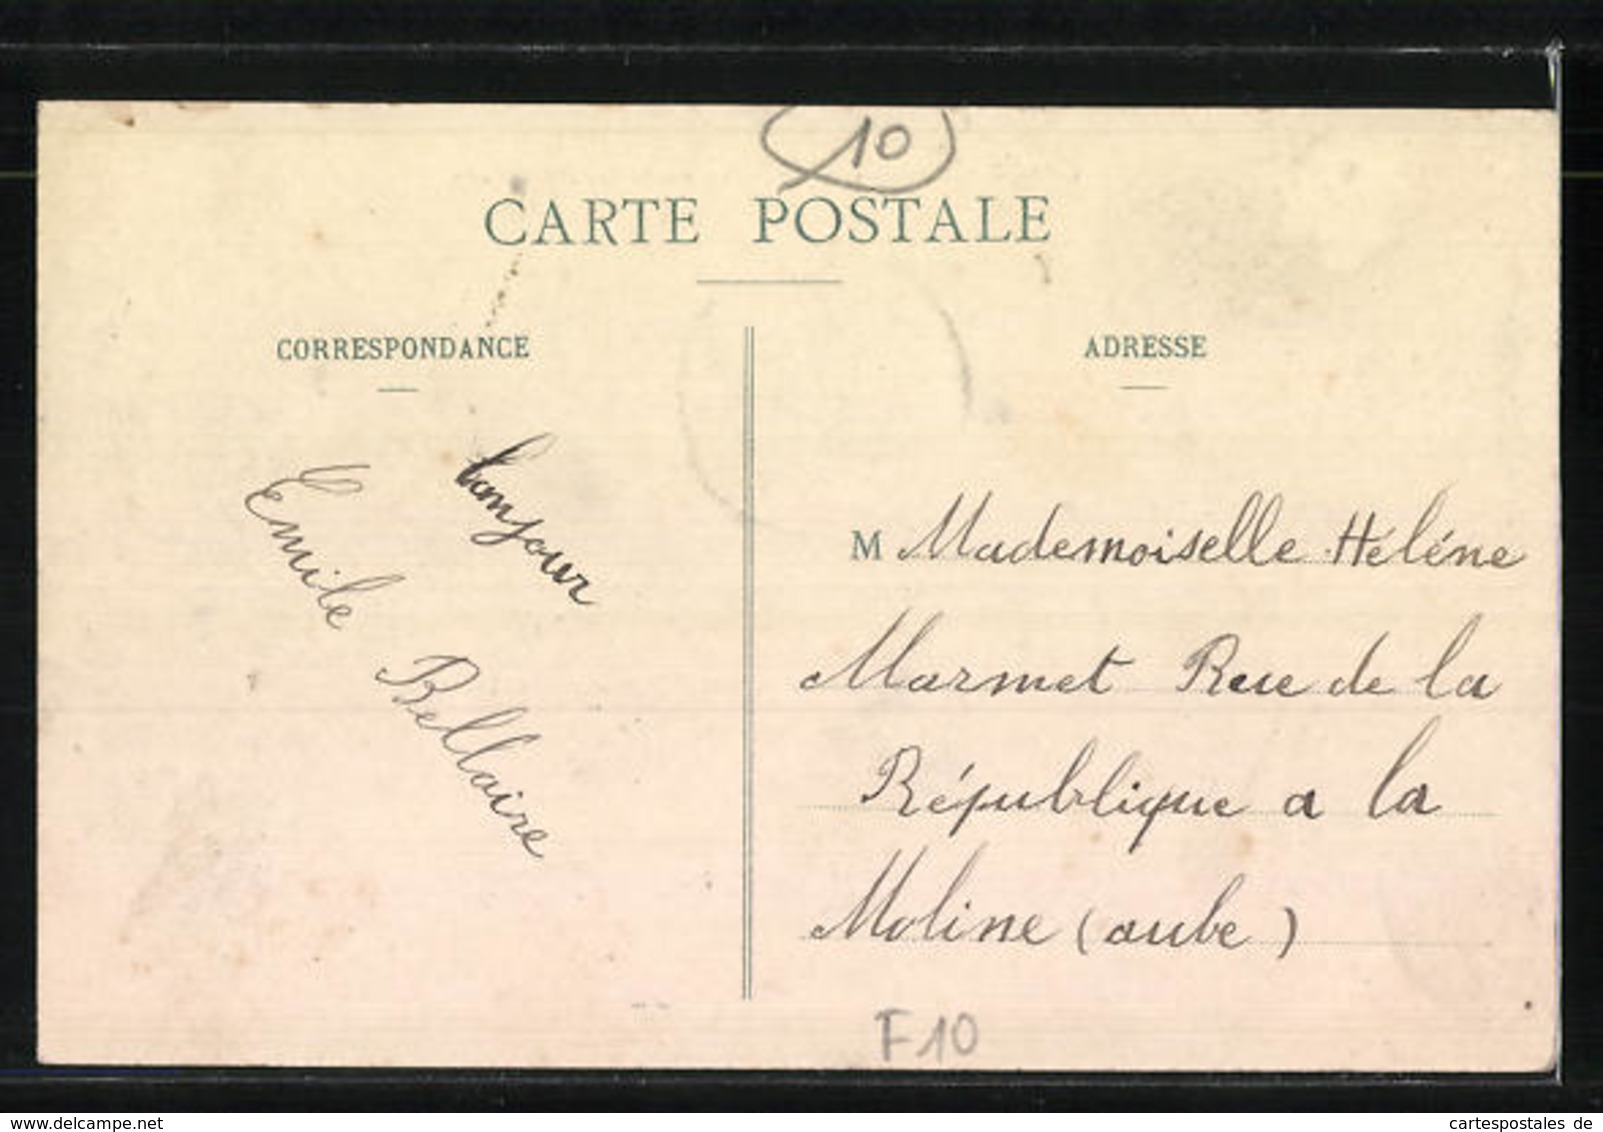 10
CARTE POSTALE
CORRESPONDANCE
ADRESSE
bonjour
Emile Bellaire
M Mademoiselle Héléne
Marmet Rue de la
République a la
Moline (aube)
F10
www.delcampe.net
cartespostales de